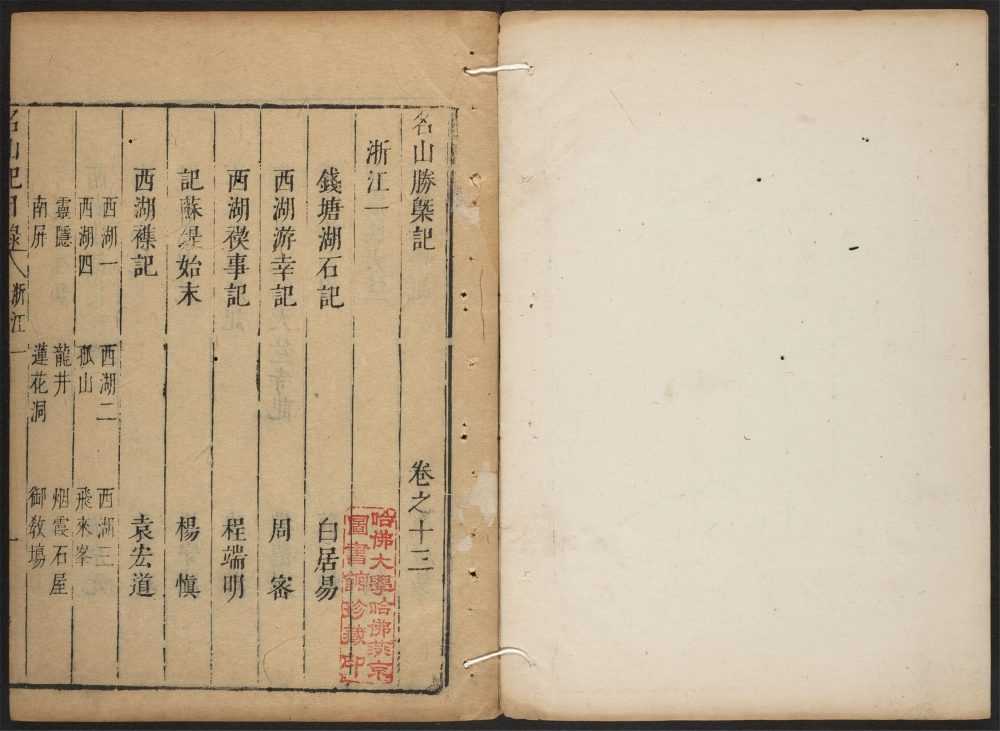 名山勝槩記 卷之十三
浙江一
錢塘湖石記 白居易
西湖游幸記 周密
西湖禊事記 程端明
記蘇堤始末 楊慎
西湖襍記 袁宏道
西湖一 西湖二 西湖三
西湖四 孤山 飛來峯
靈隱 龍井 烟霞石屋
南屏 蓮花洞 御敎場
名山記目錄 浙江一 一
哈佛大學哈佛燕京
圖書館珍藏印